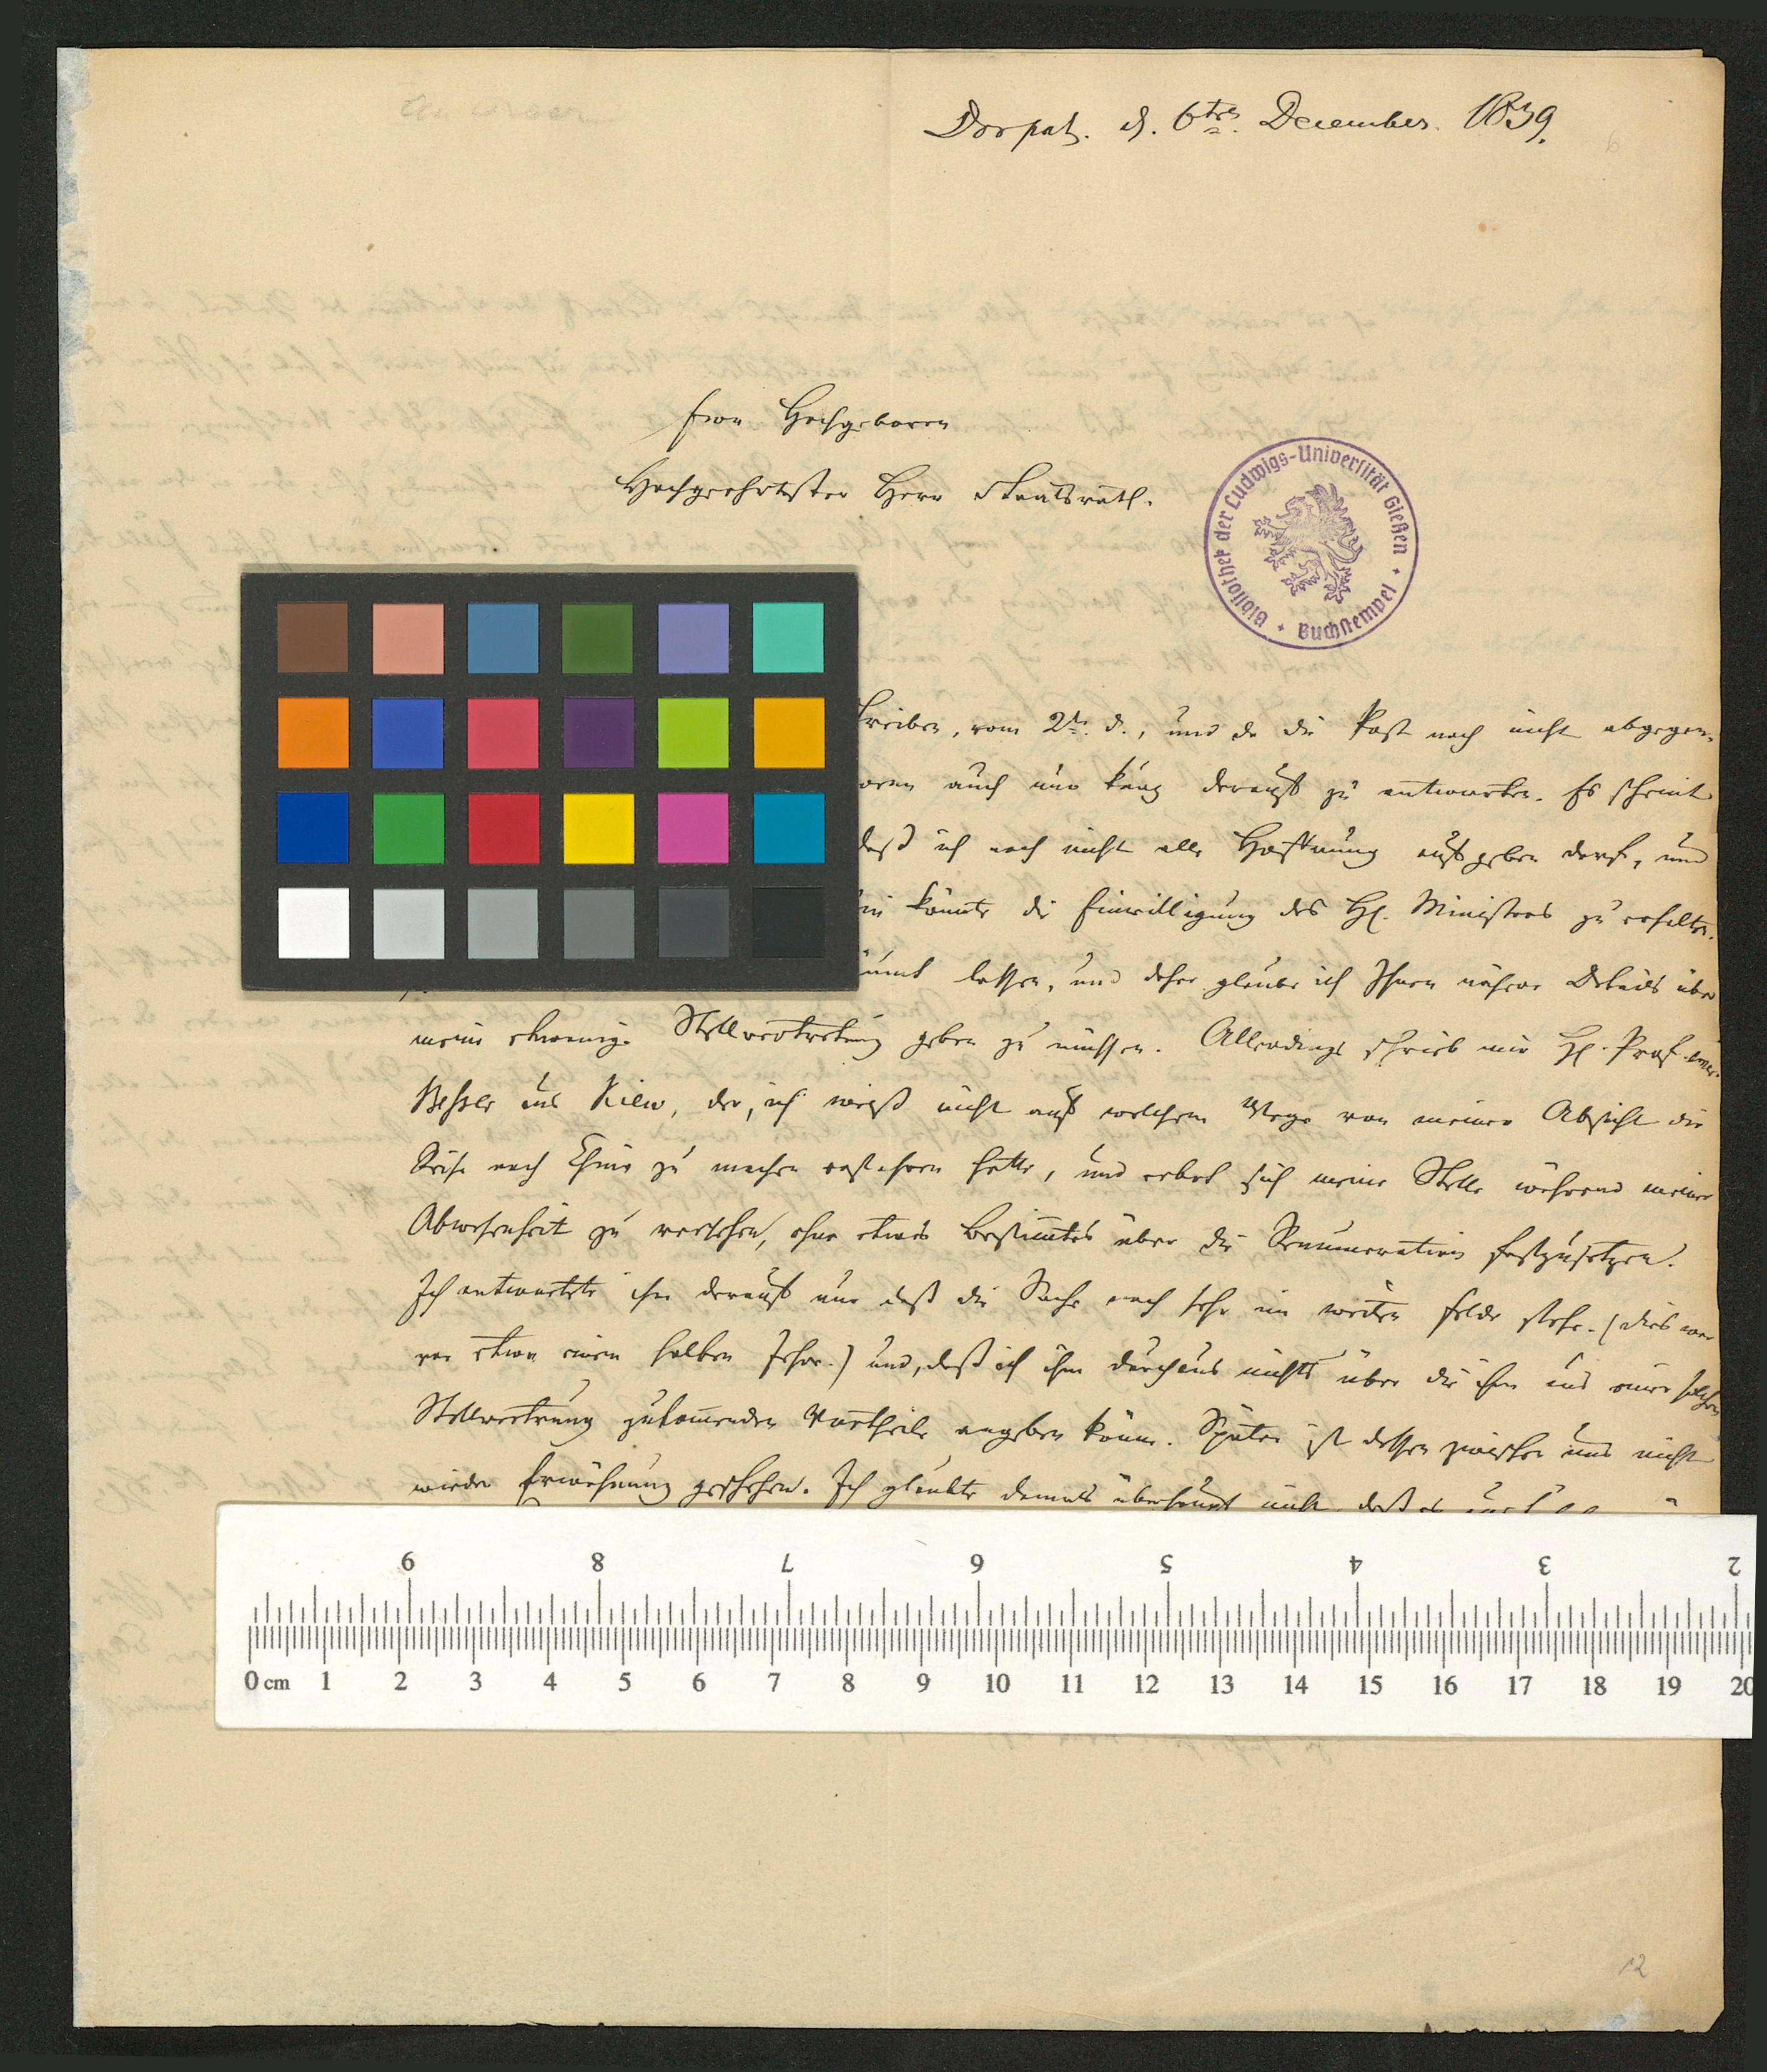 Dorpat. d. 6ten December. 1839.
6
Ewr Hochgeboren
Hochgeehrtester Herr Staatsrath.
Bibliothek der Ludwigs-Universität Gießen
Buchstempel
vom 2ten d., und da die Post noch nicht abgegan-
auch nur kurz darauf zu antworten. Es scheint
daß ich noch nicht alle Hoffnung aufgeben darf, und
könnte die Einwilligung des H. Ministers zu erhalten.
lassen, und daher glaube ich Ihnen nähere Details über
meine etwanige Stellvertretung geben zu müssen. Allerdings schrieb mir H. Prof. emer.
Besser aus Kiew, der, ich weiß nicht auf welchem Wege von meiner Absicht die
Reise nach China zu machen erfahren hatte, und erbot sich meine Stelle während meiner
Abwesenheit zu versehen, ohne etwas Bestimtes über die Remuneration festzusetzen.
Ich antwortete ihm darauf nur daß die Sache noch sehr im weiten Felde stehe. (dies war
vor etwa einem halben Jahre.) und, daß ich ihm durchaus nichts über die ihm aus einer solchen
Stellvertretung zukomenden Vortheile angeben könne. Später ist dessen zwischen uns nicht
wieder Erwähnung geschehen. Ich glaubte damals überhaupt nicht daß
9 8 7 6 5 4 3 2
0 cm 1 2 3 4 5 6 7 8 9 10 11 12 13 14 15 16 17 18 19 20
12